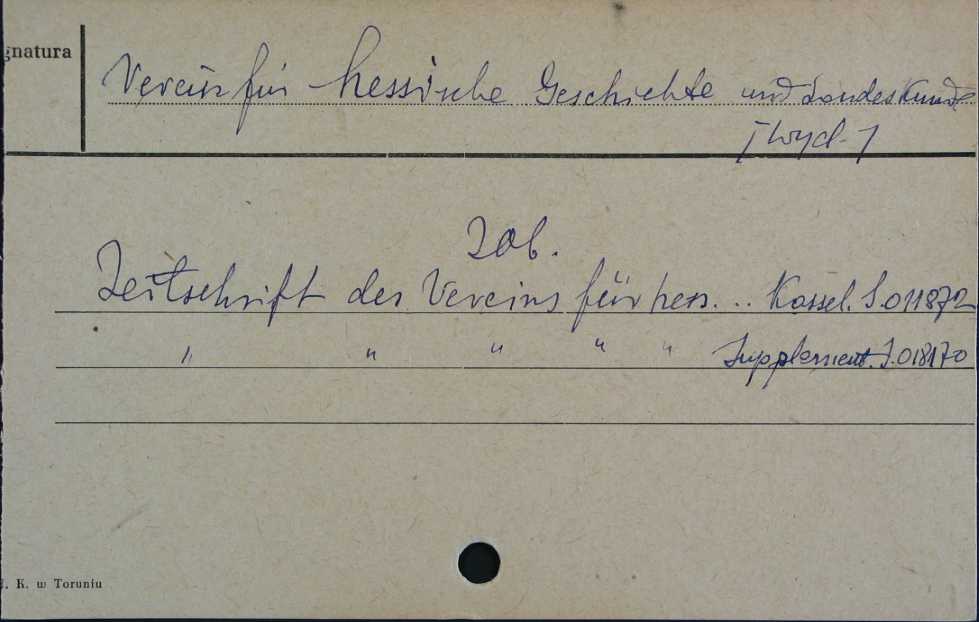 gnatura
Verein für hessische Geschichte und Landeskunde
[wyd.]
Zob.
Zeitschrift des Vereins für hess... Kassel. S.011872
" " " " " Supplement. S.018170
U. K. w Toruniu